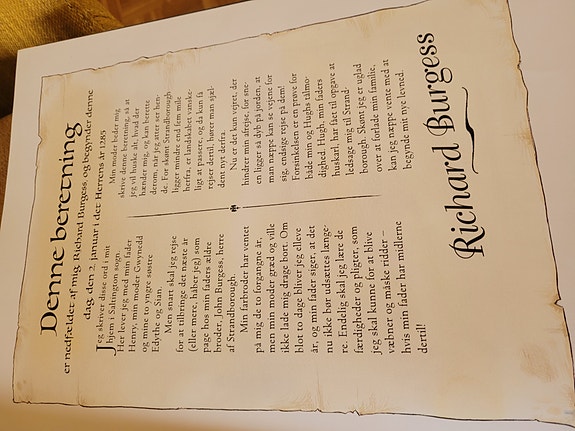 Denne beretning
er nedfældet af mig, Richard Burgess, og begynder denne
dag, den 2. januar i det Herrens år 1285
Jeg skriver disse ord i mit
hjem i Saltington sogn.
Her lever jeg med min fader
Henry, min moder Gwynedd
og mine to yngre søstre
Edythe og Sian.
Men snart skal jeg rejse
for at tilbringe det næste år
(eller mere, haber jeg) som
page hos min faders ældre
broder, John Burgess, herre
af Strandborough.
Min farbroder har ventet
på mig de to forgangne år,
men min moder græd og ville
ikke lade mig drage bort. Om
blot to dage bliver jeg elleve
år, og min fader siger, at det
nu ikke bør udsættes længe-
re. Endelig skal jeg lære de
færdigheder og pligter, som
jeg skal kunne for at blive
væbner og måske ridder –
hvis min fader har midlerne
dertil!
Min moder beder mig
skrive denne beretning, så at
jeg vil huske alt, hvad der
hænder mig, og kan berette
derom, når jeg atter ser hen-
de. For skønt Strandborough
ligger mindre end fem mile
herfra, er landskabet vanske-
ligt at passere, og da kun få
rejser dertil, hører man sjæl-
dent nyt derfra.
Nu er det kun vejret, der
hindrer min afrejse, for sne-
en ligger så dyb på jorden, at
man næppe kan se vejene for
sig, endsige rejse på dem!
Forsinkelsen er en prøve for
både min og Hughs tålmo-
dighed. Hugh, min faders
huskarl, har fået til opgave at
ledsage mig til Strand-
borough. Skønt jeg er uglad
over at forlade min familie,
kan jeg næppe vente med at
begynde mit nye levned.
Richard Burgess